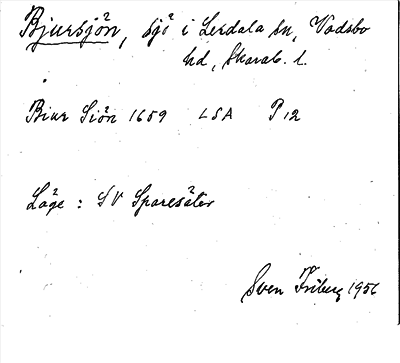 Bjursjön, sjö i Lerdala sn, Vadsbo
hd, Skarab. l.
Biur Siön 1659 LSA P12
Läge: SV Sparesäter
Sven Friberg 1956